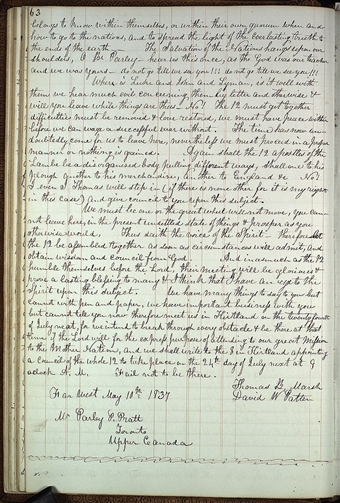 63
belongs to know within themselves, or within their own quorum when and
how to go to the nations, and to spread the light of the everlasting truth to
the ends of the earth The Salvation of the Nations hangs upon our
shoulders, O Br Parley hear us this once, as the God was our teacher
and we was yours do not go till we see you!!! do not go till we see you!!!
Where is Luke and John and Lyman, is it well with
them we hear much evil concerning them by letter and otherwise &
will you leave while things are this No!! The 12 must get together
difficulties must be removed & love restored, we must have peace within
before we can wage a successful war without. The time has now un-
doubtedly come for us to leave here, nevertheless we must proceed in a proper
manner or nothing is gained. Again shall the 12 apostles of the
Lamb be a disorganised body pulling different ways, Shall one to his
plough another to his merchandise, another to England &c No!!
I even I Thomas will step in (if there is none other for it is my
in this case) and give council to you upon this subject.
We must be one or the great what will not move, you can-
not leave here, in the present unsettled state of things & prosper as you
otherwise would. Thus saith the voice of the Spirit. Therefore let
the 12 be assembled together as soon as circumstances will admit, and
obtain wisdom and council from God. And inasmuch as the 12
humble themselves before the Lord, their meeting will be glorious &
prove a lasting blessing to many & I think that I have an eye to the
Spirit upon this subject. We have many things to say to you but
cannot with pen and paper, we have important business with you
but cannot tell you now therefore meet us in Kirtland on the twenty fourth
of July next, for we intend to break through every obstacle & be there at that
time if the Lord will for the express purpose of attending to our great mission
to the Mother Nations, and we shall write to the 12 in Kirtland appointing
a Council of the whole 12 to take place on the 24th day of July next at 9
oclock A. M. Fail not to be there.
Thomas B. Marsh
David W. Patten
Far West May 10th 1837
Mr Parley P. Pratt
Toronto
Upper Canada